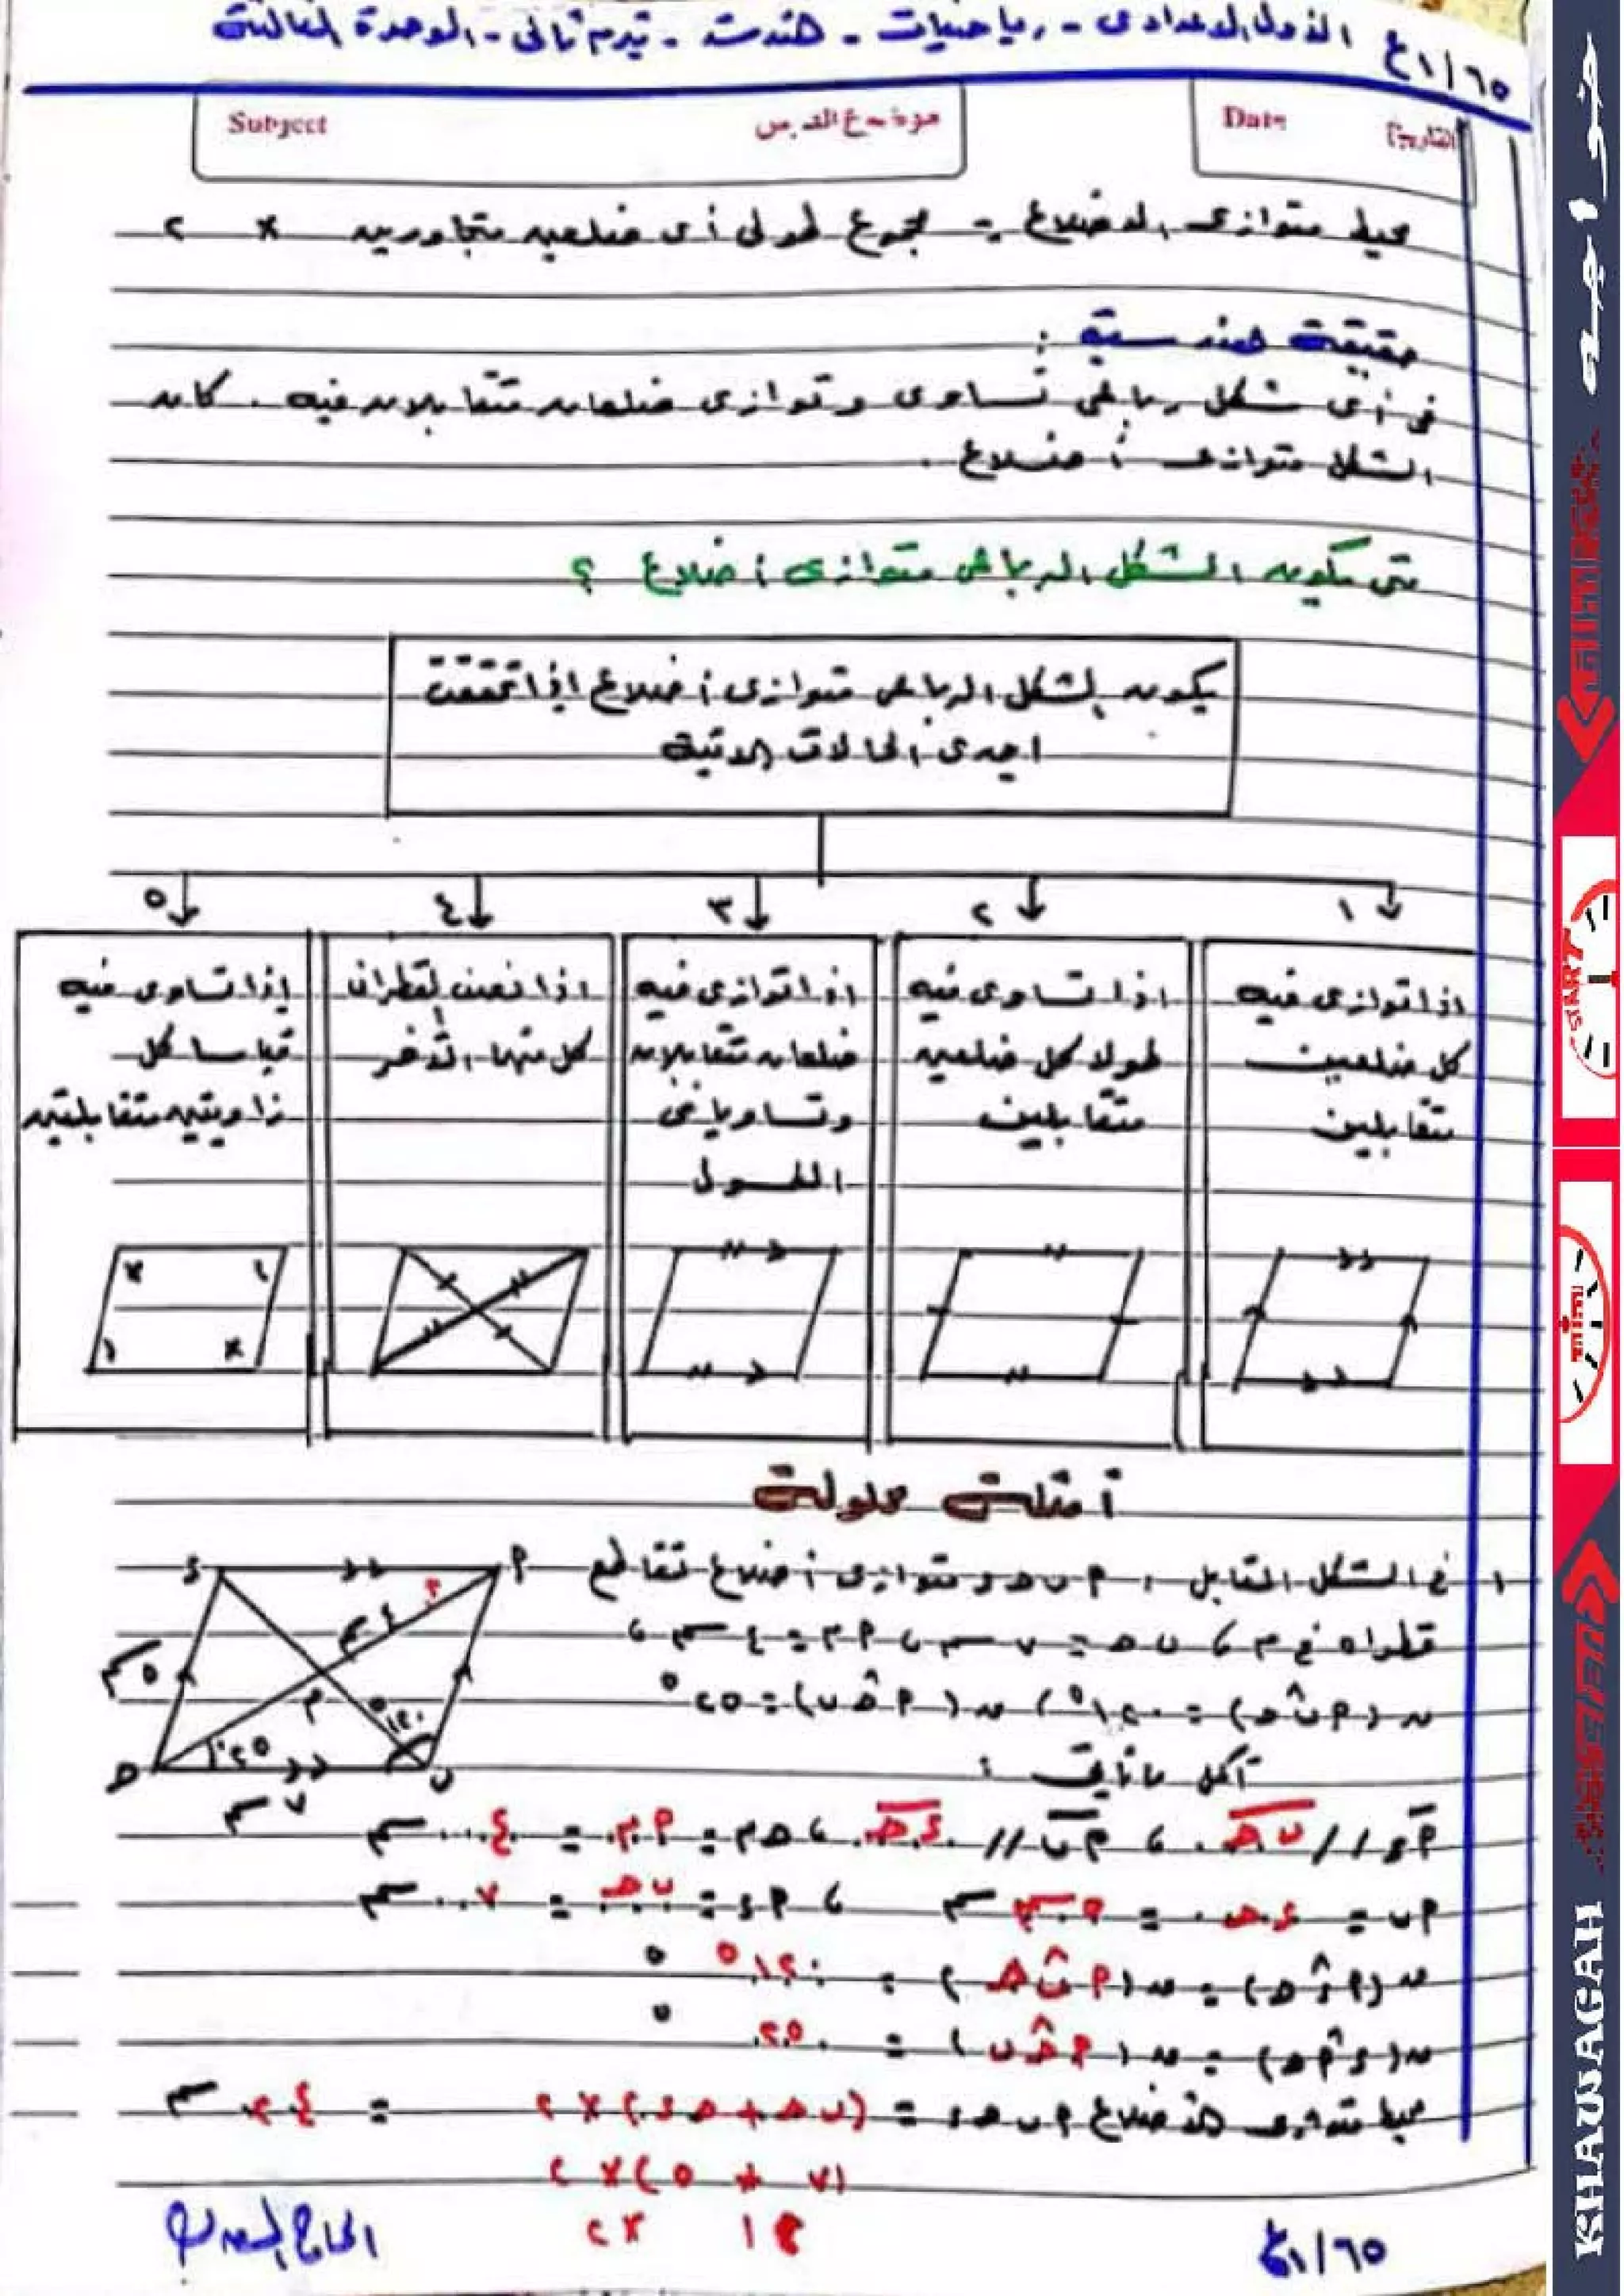 ٦٥ / ١ع الأول الاعدادى - رياضيات - هندسة - ترم ثانى - الوحدة الثالثة
Subject موضوع الدرس
Date التاريخ
محيط متوازى الاضلاع = مجموع طولى أى ضلعين متجاورين × ٢
حقيقة هندسية :
فى أى شكل رباعى تساوى وتوازى ضلعان متقابلان فيه . كان
الشكل متوازى أضلاع .
متى يكون الشكل الرباعى متوازى أضلاع ؟
يكون الشكل الرباعى متوازى أضلاع اذا تحققت
احدى الحالات الاتية
١
اذا توازى فيه
كل ضلعين
متقابلين
٢
اذا تساوى فيه
طولا كل ضلعين
متقابلين
٣
اذا توازى فيه
ضلعان متقابلان
وتساويا فى
الطول
٤
اذا نصف القطران
كل منهما الآخر
٥
إذا تساوى فيه
قياسا كل
زاويتين متقابلتين
أمثلة محلولة
١ فى الشكل المقابل : م ب ح ء متوازى أضلاع تقاطع
قطراه فى م ، ب ح = ٧ سم ، م م = ٤ سم ،
ن (م ب ح) = ١٢٠° ، ن (م ح ب) = ٢٥°
أكمل ما يأتى :
م ء // ب ح ، م ب // ء ح ، ح م = م م = ٤ سم
م ب = ء ح = ٥ سم ، م ء = ب ح = ٧ سم
ن (م ء ح) = ن (م ب ح) = ١٢٠ °
ن (ء م ح) = ن (م ح ب) = ٢٥ °
محيط متوازى الأضلاع م ب ح ء = (ب ح + ح ء) × ٢ = ٢٤ سم
(٧ + ٥) × ٢
١٢ × ٢
٦٥ / ١ع
ء م
٤ سم
٥ سم
م
١٢٠°
٢٥°
ح ب
٧ سم
خواجه
START
time
KHAWAGAH